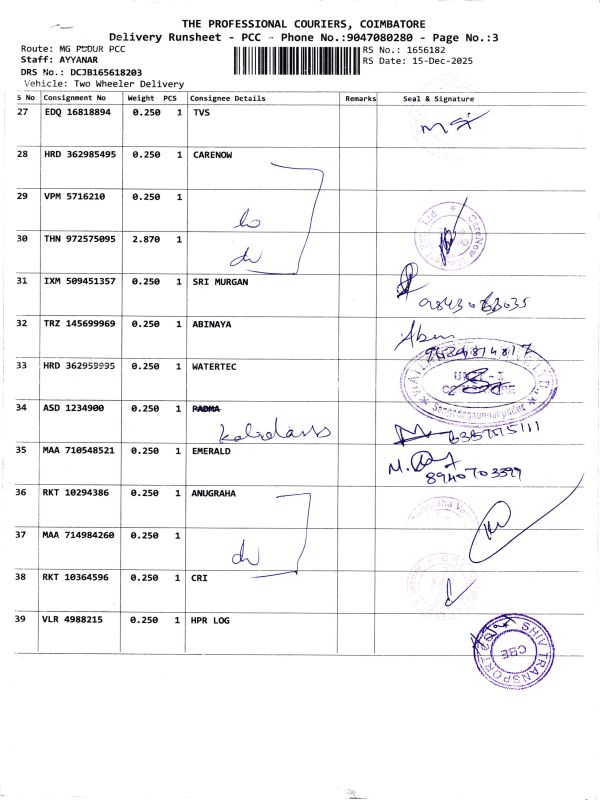 THE PROFESSIONAL COURIERS, COIMBATORE
Delivery Runsheet - PCC - Phone No.:9047080280 - Page No.:3
Route: MG PUDUR PCC
RS No.: 1656182
Staff: AYYANAR
RS Date: 15-Dec-2025
DRS No.: DCJB165618203
Vehicle: Two Wheeler Delivery
S No Consignment No Weight PCS Consignee Details Remarks Seal & Signature
27 EDQ 16818894 0.250 1 TVS
28 HRD 362985495 0.250 1 CARENOW
29 VPM 5716210 0.250 1
30 THN 972575095 2.870 1
CareNow
31 IXM 509451357 0.250 1 SRI MURGAN
32 TRZ 145699969 0.250 1 ABINAYA
33 HRD 362959995 0.250 1 WATERTEC
UNIT - I
34 ASD 1234900 0.250 1 PADMA
35 MAA 710548521 0.250 1 EMERALD
8940703399
36 RKT 10294386 0.250 1 ANUGRAHA
37 MAA 714984260 0.250 1
38 RKT 10364596 0.250 1 CRI
39 VLR 4988215 0.250 1 HPR LOG
SHIV TRANSPORT
CBE